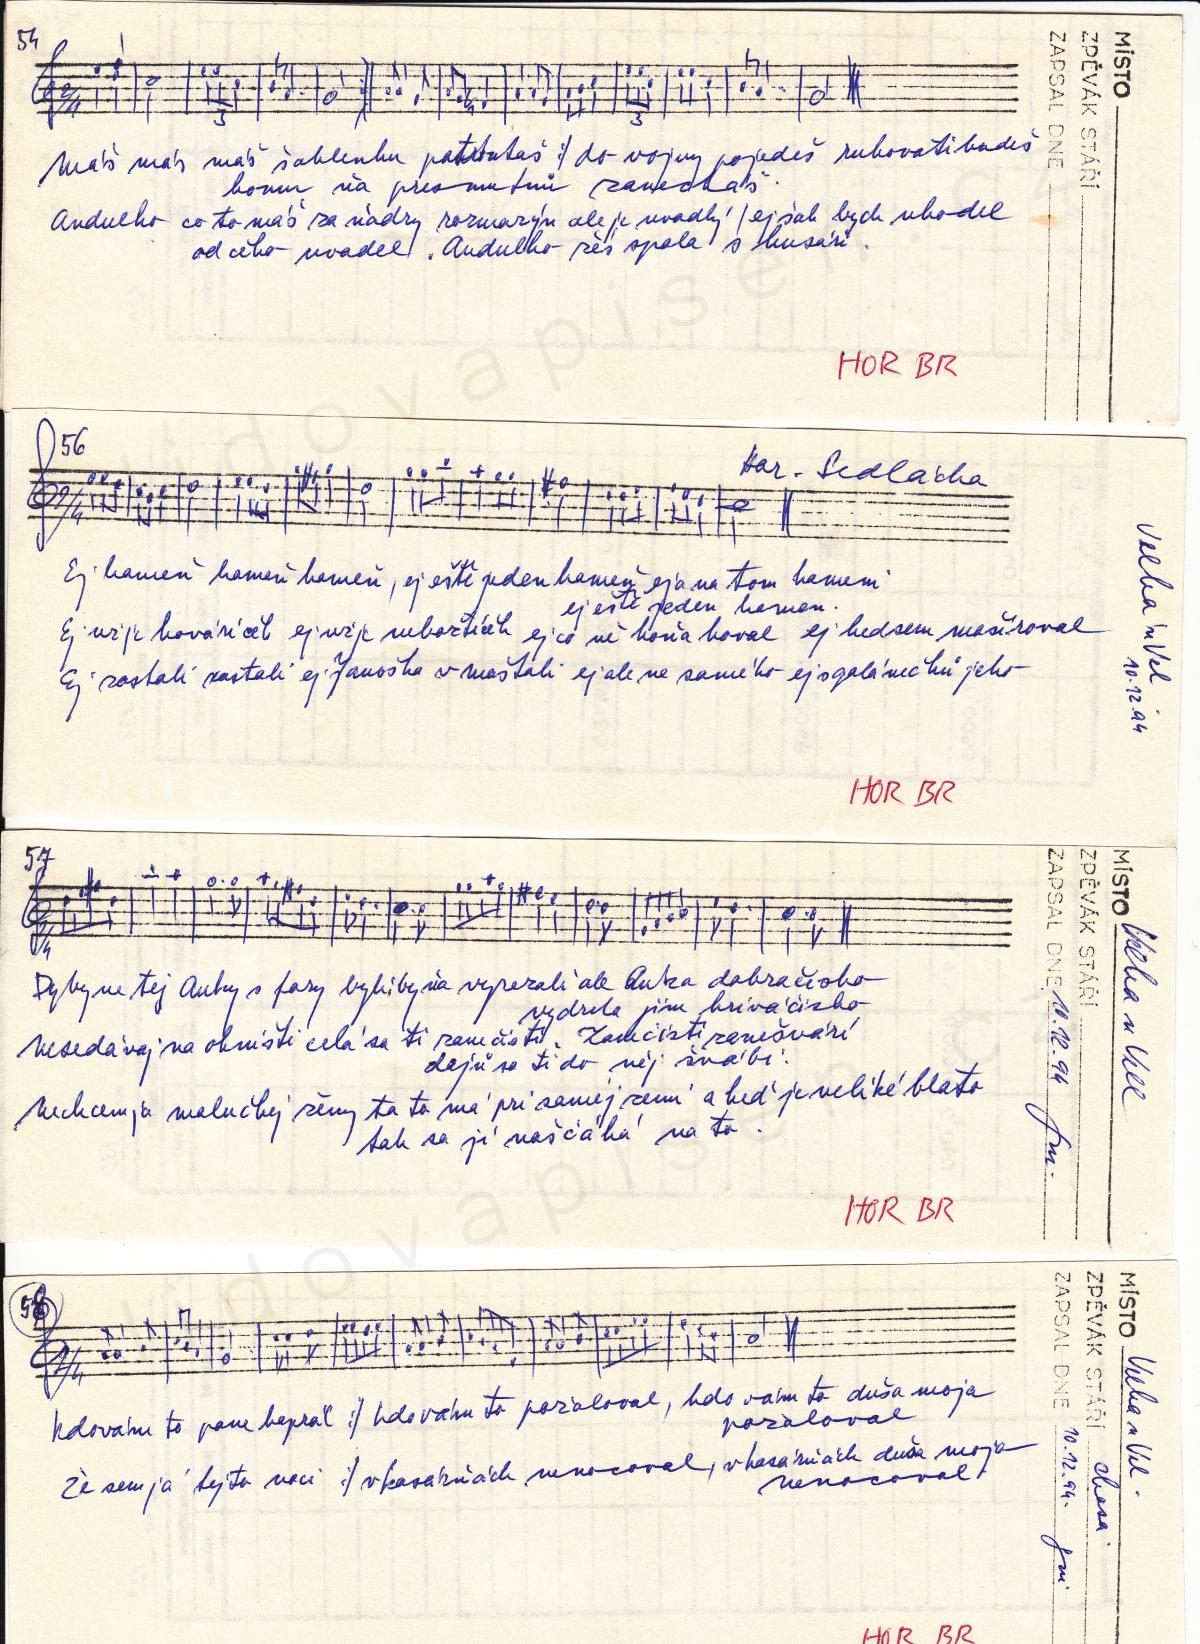 54
MÍSTO
ZPĚVÁK STÁŘÍ
ZAPSAL DNE
3
3
Máš máš máš šablenku :/ do vojny pojedeš rukovati budeš
komu ňa zanecháš.
Andulko co to máš za ňádry rozmarýn ale je uvadlý / ej šak bych uhodel
od čeho uvadel. Andulko žes spala s husári.
HOR BR
56
Hor. Sedlácka
Ej kameň kameň kameň, ej eště jeden kameň eja na tom kameni
ej eště jeden kamen.
Ej už je ej už je ej co ně koňa koval ej keď sem mašíroval
Ej zostali zostali ej Janoška v maštali ej ale ne samého ej s galánečků jeho
Velká n Vel
10.12.94
HOR BR
57
MÍSTO Velká n Vel
ZPĚVÁK STÁŘÍ
ZAPSAL DNE 10.12.94
Dyby ne tej Anky s fary byli by ňa vyrezali ale Anka dobračisko
vydrela jim kriváčisko
Nesedávaj na ohništi celá sa ti zanečistí. Zanečistí zanešvárí
dajů sa ti do něj švábi.
Nechcem ja maluckej ženy ta to má pri samej zemi a keď je veliké blato
tak sa jí naščáká na to.
HOR BR
58
MÍSTO Velká n Vel.
ZPĚVÁK STÁŘÍ chasa
ZAPSAL DNE 10.12.94.
Kdo vám to pane kaprál :/ kdo vám to požaloval, kdo vám to duša moja
požaloval
Že sem já tejto noci :/ v kasárňách nenocoval, v kasárňách duša moja
nenocoval.
HOR BR
lidovapisen